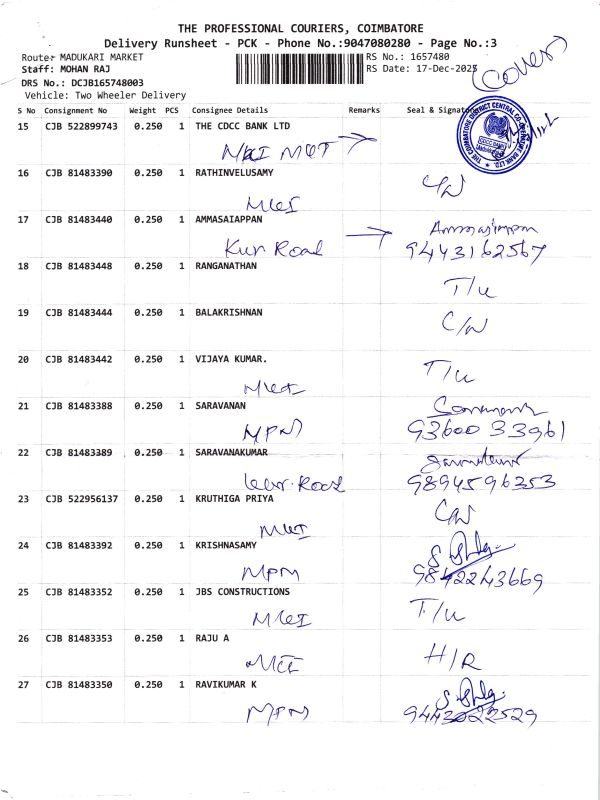 THE PROFESSIONAL COURIERS, COIMBATORE
Delivery Runsheet - PCK - Phone No.:9047080280 - Page No.:3
Route: MADUKARI MARKET
RS No.: 1657480
Staff: MOHAN RAJ
RS Date: 17-Dec-2025
(Cover)
DRS No.: DCJB165748003
Vehicle: Two Wheeler Delivery
S No Consignment No Weight PCS Consignee Details Remarks Seal & Signature
15 CJB 522899743 0.250 1 THE CDCC BANK LTD
16 CJB 81483390 0.250 1 RATHINVELUSAMY
17 CJB 81483440 0.250 1 AMMASAIAPPAN
Kur. Road 9443162567
18 CJB 81483448 0.250 1 RANGANATHAN
T/u
19 CJB 81483444 0.250 1 BALAKRISHNAN
C/W
20 CJB 81483442 0.250 1 VIJAYA KUMAR.
T/u
21 CJB 81483388 0.250 1 SARAVANAN
MPM 93600 33961
22 CJB 81483389 0.250 1 SARAVANAKUMAR
Road 9894596353
23 CJB 522956137 0.250 1 KRUTHIGA PRIYA
24 CJB 81483392 0.250 1 KRISHNASAMY
MPM 9842243669
25 CJB 81483352 0.250 1 JBS CONSTRUCTIONS
T/u
26 CJB 81483353 0.250 1 RAJU A
H/R
27 CJB 81483350 0.250 1 RAVIKUMAR K
MPM